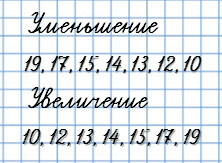 Уменьшение
19, 17, 15, 14, 13, 12, 10
Увеличение
10, 12, 13, 14, 15, 17, 19